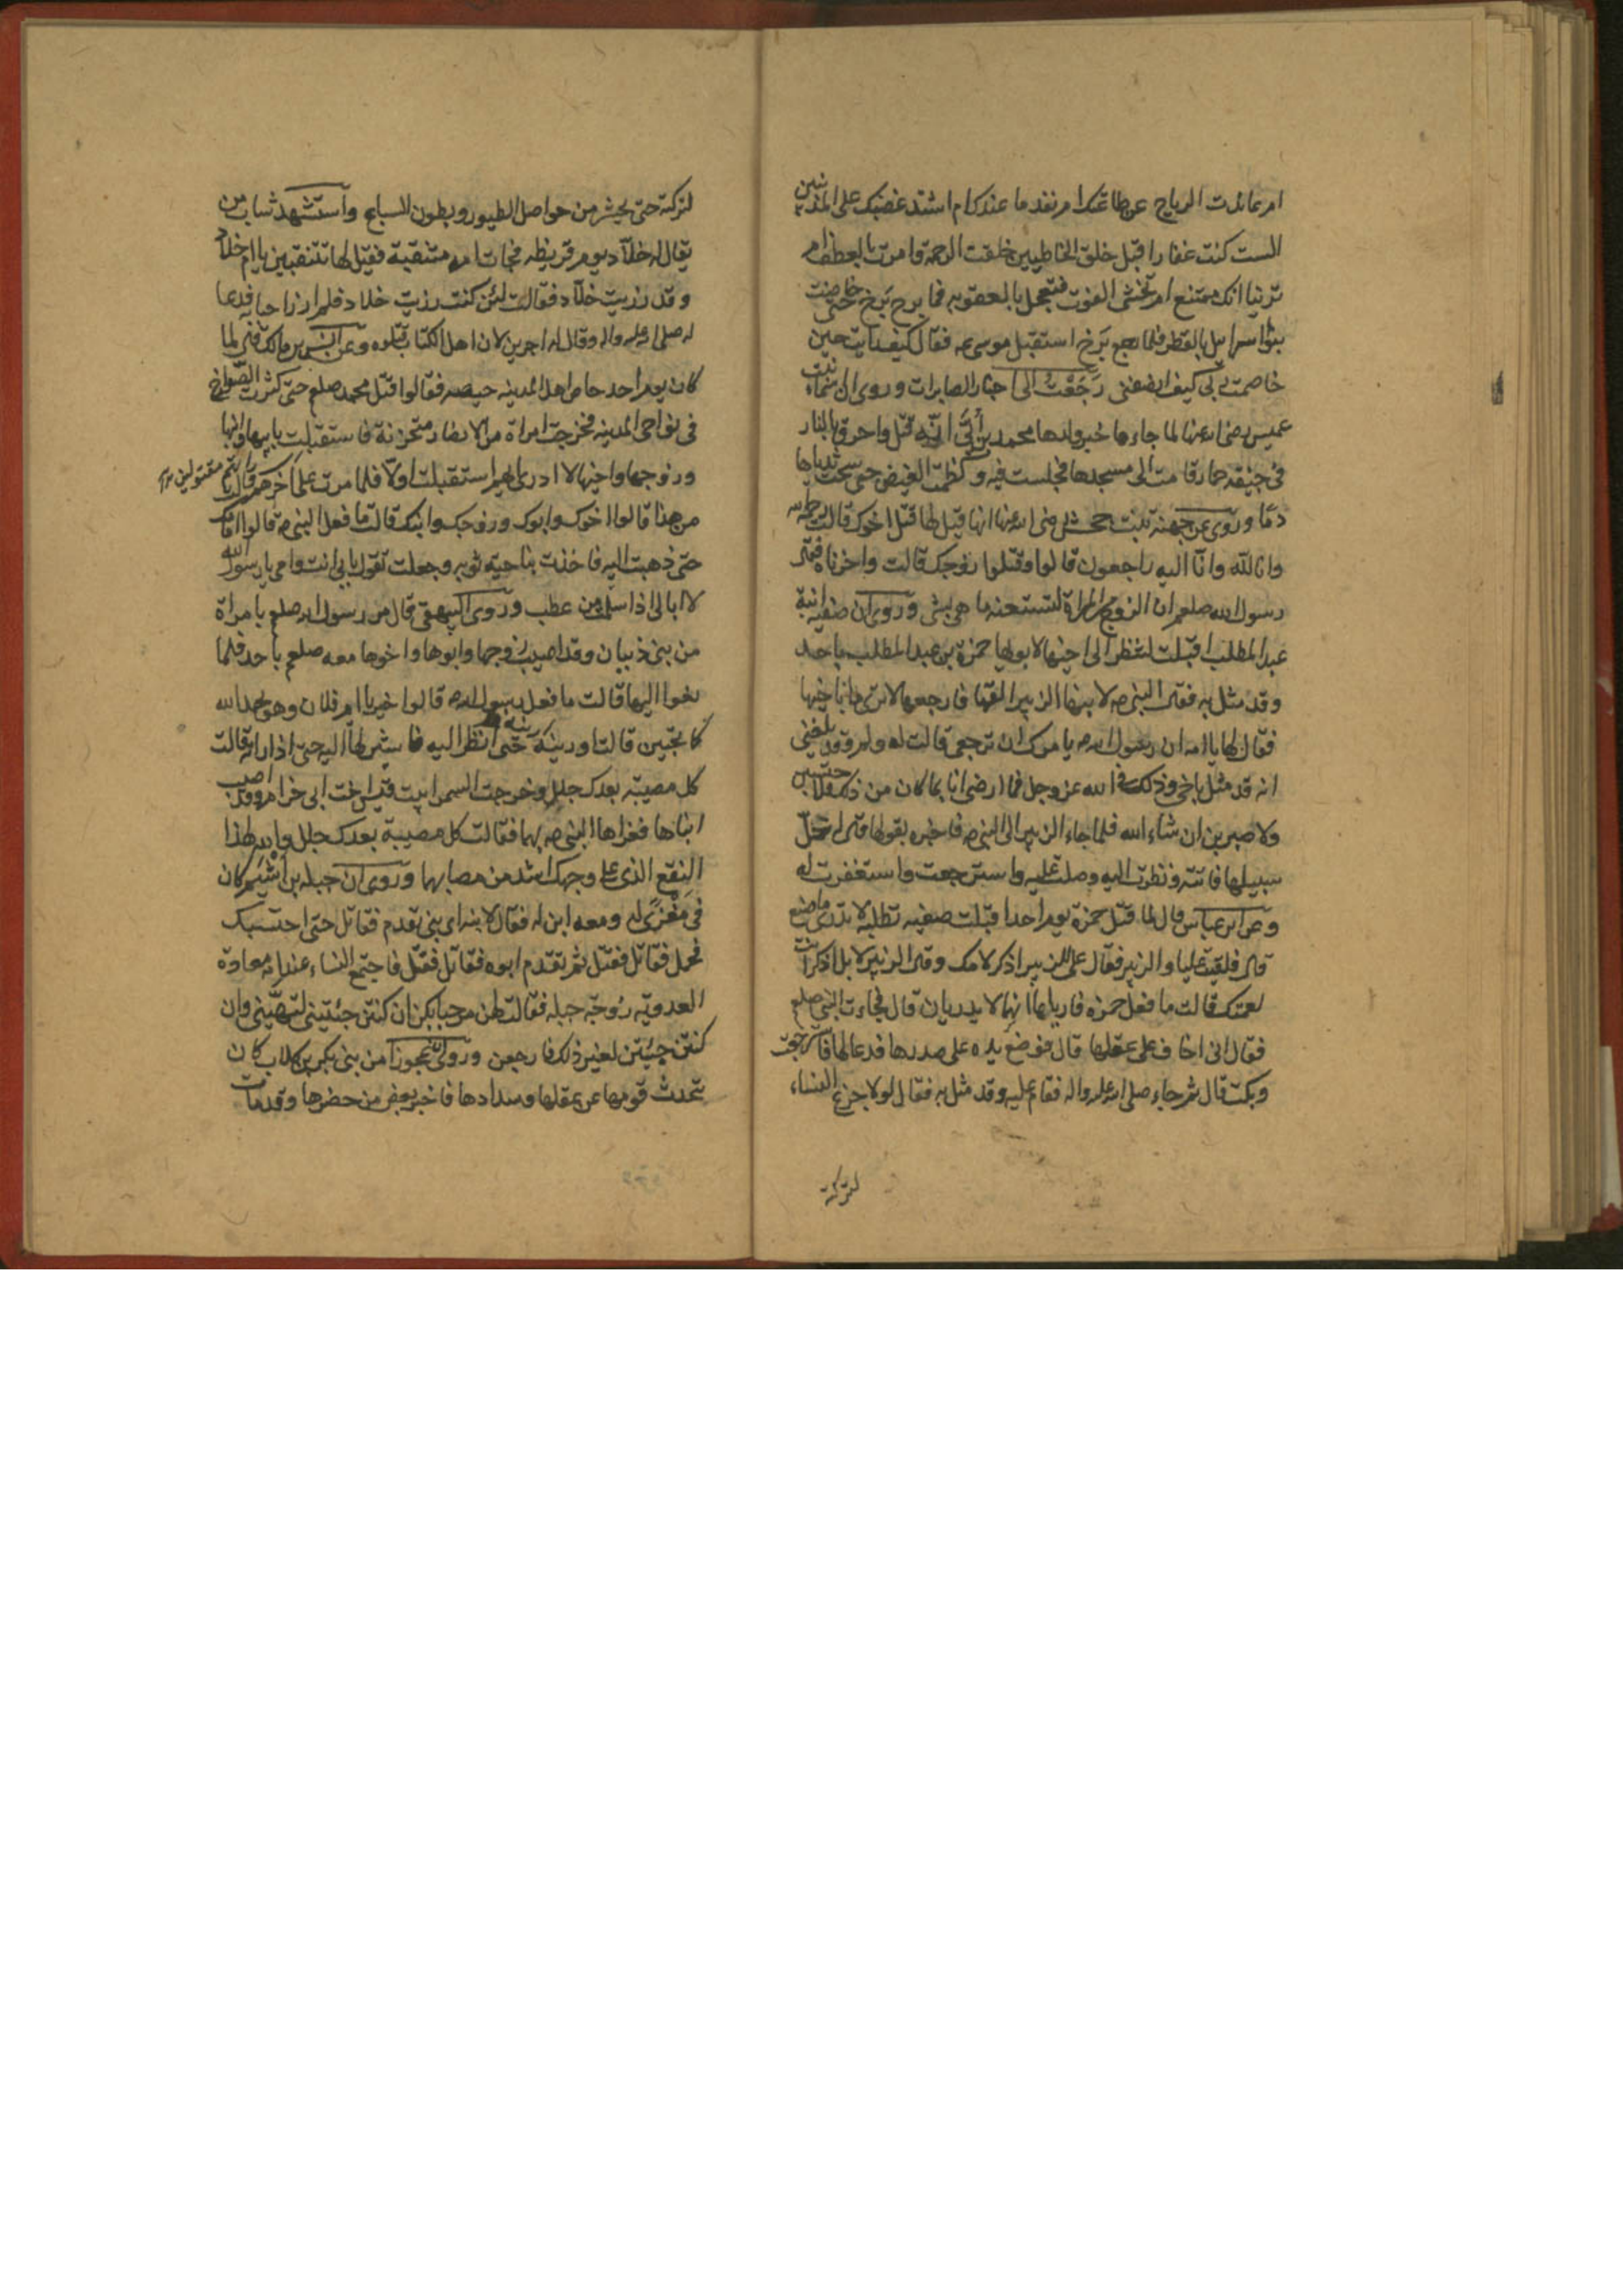 ام عاندت الرياح عن طاعتك ام نفد ما عندك ام اشتد غضبك على المذنبين
الست كنت غفارا قبل خلق الخاطيين خلقت الرحمة وامرت بالعطف ام
ترينا انك ممتنع ام تخشى الفوت فتعجل بالعقوبه فما برح برخ حتى خاضت
بنوا اسرائيل بالقطر فلما رجع برخ استقبل موسى عم فقال كيف رايت حين
خاصمت ربى كيف انصفنى رجعت الى اخبار الصابرات وروى ان اسماء بنت
عميس رضى الله عنها لما جاءها خبر ولدها محمد بن أبى انه قتل واحرق بالنار
فى جيفة حمار قامت الى مسجدها فجلست فيه وكظمت الغيض حتى شخبت ثدياها
دما وروى عن حمنة بنت جحش رضى الله عنها انها قيل لها قتل اخوك قالت رحمه الله
وانا لله وانا اليه راجعون قالوا وقتلوا زوجك قالت واحزناه فقال
رسول الله صلعم ان للزوج من المراة لشعبه ما هى لشى وروى ان صفيه ابنة
عبد المطلب اقبلت لتنظر الى اخيها لابويها حمزة بن عبد المطلب باحد
وقد مثل به فقال النبى ص لابنها الزبير القها فارجعها لا ترى ما باخيها
فقال لها يا امه ان رسول الله ص يامرك ان ترجعى قالت له ولم وقد بلغنى
انه قد مثل باخى وذلك فى الله عز وجل فما ارضانا بما كان من ذلك فلاحتسبن
ولاصبرن ان شاء الله فلما جاء الزبير الى النبى ص فاخبره بقولها قال له خل
سبيلها فاتته ونظرت اليه وصلت عليه واسترجعت واستغفرت له
وعن ابن عباس قال لما قتل حمزة يوم احد اقبلت صفيه تطلبه لا تدرى ما صنع
قال فلقيت عليا والزبير فقال على للزبير اذكر لامك وقال الزبير لا بل اذكر انت
لعمتك قالت ما فعل حمزه فارياها انهما لا يدريان قال فجاءت النبى صلعم
فقال انى اخاف على عقلها قال فوضع يده على صدرها فدعا لها فاسترجعت
وبكت قال ثم جاء صلى الله عليه واله فقام عليه وقد مثل به فقال لولا جزع النساء
لتركته
لتركته حتى يحشر من حواصل الطيور وبطون السباع واستشهد شاب من
يقال له خلاد يوم قريظه فجات امه متنقبة فقيل لها تتنقبين يا ام خلاد
وقد رزيت خلاد فقالت لئن كنت رزيت خلاد فلم ارزا حيائى فدعا
له صلى الله عليه واله وقال له اجرين لان اهل الكتاب قتلوه وعن انس بن مالك قال لما
كان يوم احد حاص اهل المدينه حيصه فقالوا قتل محمد صلعم حتى كثرت الصوارخ
فى نواحى المدينه فخرجت امراة من الانصار متحزنة فاستقبلت بابيها وابنها
وزوجها واخيها لا ادرى ايهم استقبلت اولا فلما مرت على آخرهم قالت
من هذا قالوا اخوك وابوك وزوجك وابنك قالت ما فعل النبى ص قالوا امامك
حتى ذهبت اليه فاخذت بناحية ثوبه وجعلت تقول بابى انت وامى يا رسول الله
لا ابالى اذا سلمت من عطب وروى البيهقى قال مر رسول الله صلعم بامراة
من بنى ذبيان وقد اصيب زوجها وابوها واخوها معه صلعم باحد فلما
نعوا اليها قالت ما فعل رسول الله ص قالوا خيرا يا ام فلان وهو بحمد الله
كما تحبين قالت ارونيه حتى انظر اليه فاشير لها اليه حتى اذا راته قالت
كل مصيبة بعدك جلل وخرجت السمراء بنت قيس اخت ابى حزام وقد اصيب
ابناها فعزاها النبى ص بهما فقالت كل مصيبة بعدك جلل والله لهذا
النقع الذى على وجهك اشد من مصابهما وروى ان جبله بن اشيم كان
فى مغزى له ومعه ابن له فقال لابنه اى بنى تقدم فقاتل حتى احتسبك
فحمل فقاتل فقتل ثم تقدم ابوه فقاتل فقتل فاجتمع النساء عند ام معاذة
العدويه زوجة جبله فقالت لهن مرحبا بكن ان كنتن جئتين لتهنينى وان
كنتن جيتن لغير ذلك فارجعن وروى ان عجوزا من بنى بكر بن كلاب كان
تتحدث قومها عن عقلها وسدادها فاخبر بعض من حضرها وقد مات